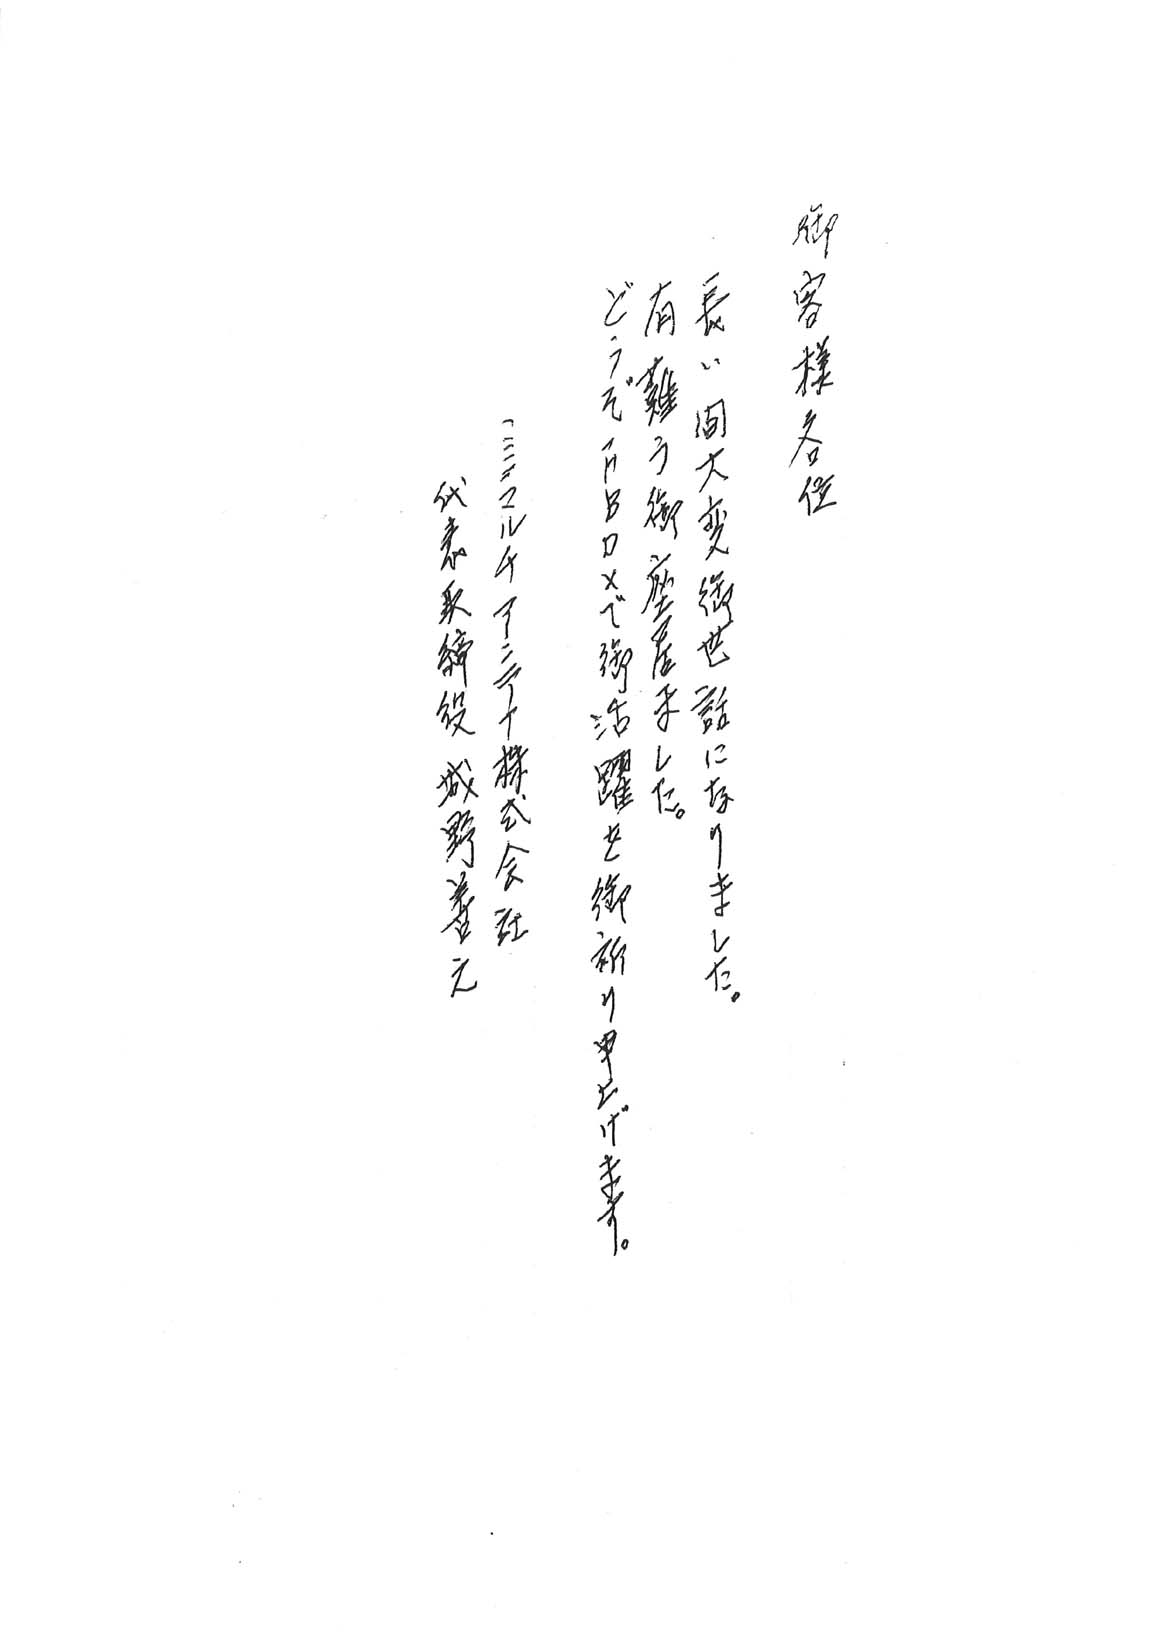 御客様各位
長い間大変御世話になりました。
有難う御座居ました。
どうぞ で御活躍を御祈り申上げます。
コミュニティ株式会社
代表取締役 城野善元